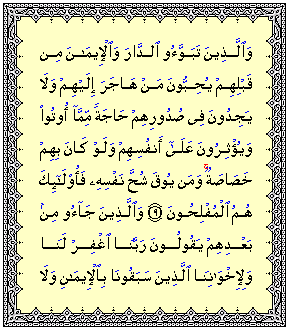 وَٱلَّذِينَ تَبَوَّءُو ٱلدَّارَ وَٱلْإِيمَـٰنَ مِن
قَبْلِهِمْ يُحِبُّونَ مَنْ هَاجَرَ إِلَيْهِمْ وَلَا
يَجِدُونَ فِى صُدُورِهِمْ حَاجَةً مِّمَّآ أُوتُوا۟
وَيُؤْثِرُونَ عَلَىٰٓ أَنفُسِهِمْ وَلَوْ كَانَ بِهِمْ
خَصَاصَةٌ ۚ وَمَن يُوقَ شُحَّ نَفْسِهِۦ فَأُو۟لَـٰٓئِكَ
هُمُ ٱلْمُفْلِحُونَ ﴿٩﴾ وَٱلَّذِينَ جَآءُو مِنۢ
بَعْدِهِمْ يَقُولُونَ رَبَّنَا ٱغْفِرْ لَنَا
وَلِإِخْوَٰنِنَا ٱلَّذِينَ سَبَقُونَا بِٱلْإِيمَـٰنِ وَلَا